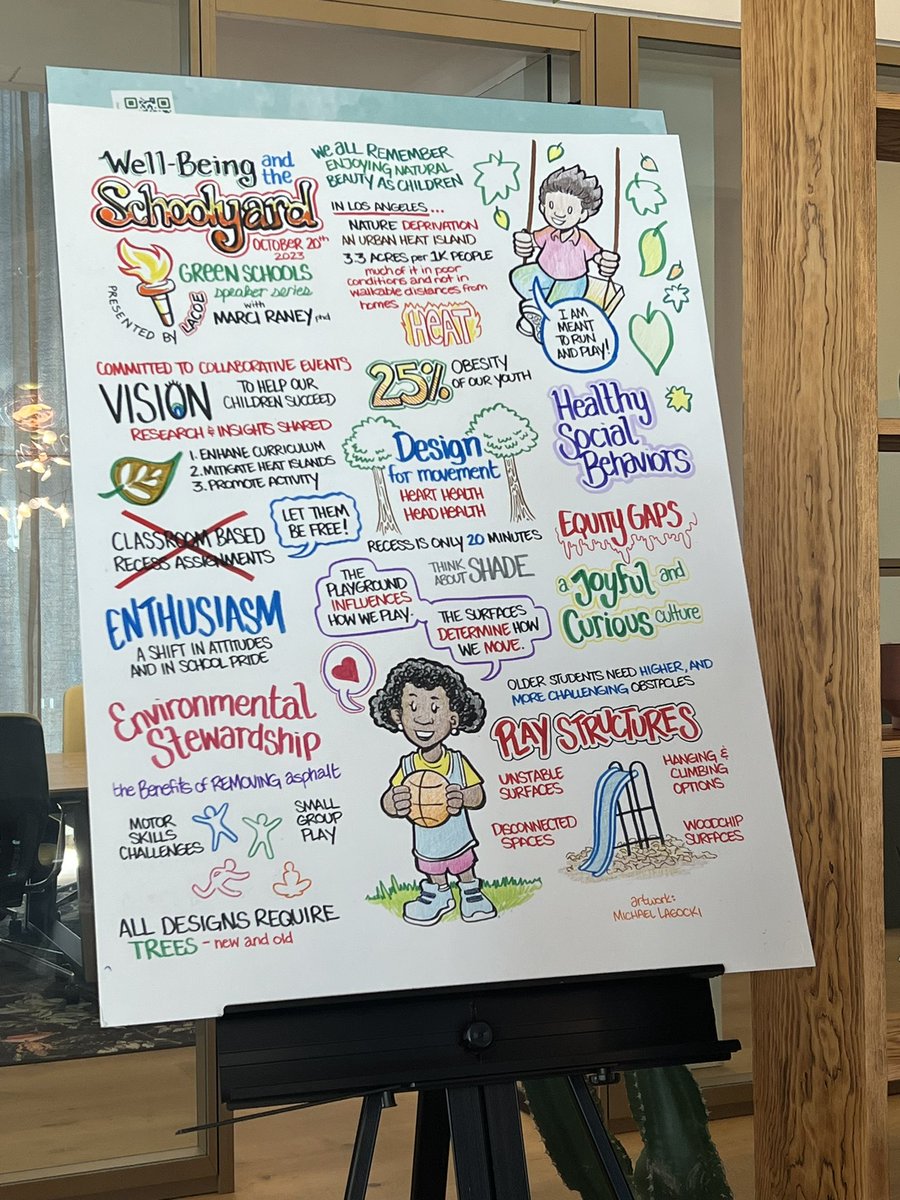 Well-Being and the
Schoolyard
OCTOBER 20th
2023
GREEN SCHOOLS
speaker series
with
MARCI RANEY phd
PRESENTED BY LACOE
WE ALL REMEMBER
ENJOYING NATURAL
BEAUTY AS CHILDREN
IN LOS ANGELES...
NATURE DEPRIVATION
AN URBAN HEAT ISLAND
3.3 ACRES per 1K PEOPLE
much of it in poor
conditions and not in
walkable distances from
homes
HEAT
I AM
MEANT
TO RUN
AND PLAY!
COMMITTED TO COLLABORATIVE EVENTS
VISION
TO HELP OUR
CHILDREN SUCCEED
RESEARCH & INSIGHTS SHARED
1. ENHANE CURRICULUM
2. MITIGATE HEAT ISLANDS
3. PROMOTE ACTIVITY
25% OBESITY
OF OUR YOUTH
Design
for movement
HEART HEALTH
HEAD HEALTH
Healthy
Social
Behaviors
CLASSROOM BASED
RECESS ASSIGNMENTS
LET THEM
BE FREE!
RECESS IS ONLY 20 MINUTES
THINK
ABOUT SHADE
EQUITY GAPS
a Joyful and
Curious culture
ENTHUSIASM
A SHIFT IN ATTITUDES
AND IN SCHOOL PRIDE
THE
PLAYGROUND
INFLUENCES
HOW WE PLAY.
THE SURFACES
DETERMINE HOW
WE MOVE.
Environmental
Stewardship
the Benefits of REMOVING asphalt
MOTOR
SKILLS
CHALLENGES
SMALL
GROUP
PLAY
ALL DESIGNS REQUIRE
TREES - new and old
OLDER STUDENTS NEED HIGHER, AND
MORE CHALLENGING OBSTACLES
PLAY STRUCTURES
UNSTABLE
SURFACES
DISCONNECTED
SPACES
HANGING &
CLIMBING
OPTIONS
WOODCHIP
SURFACES
artwork:
MICHAEL LAGOCKI